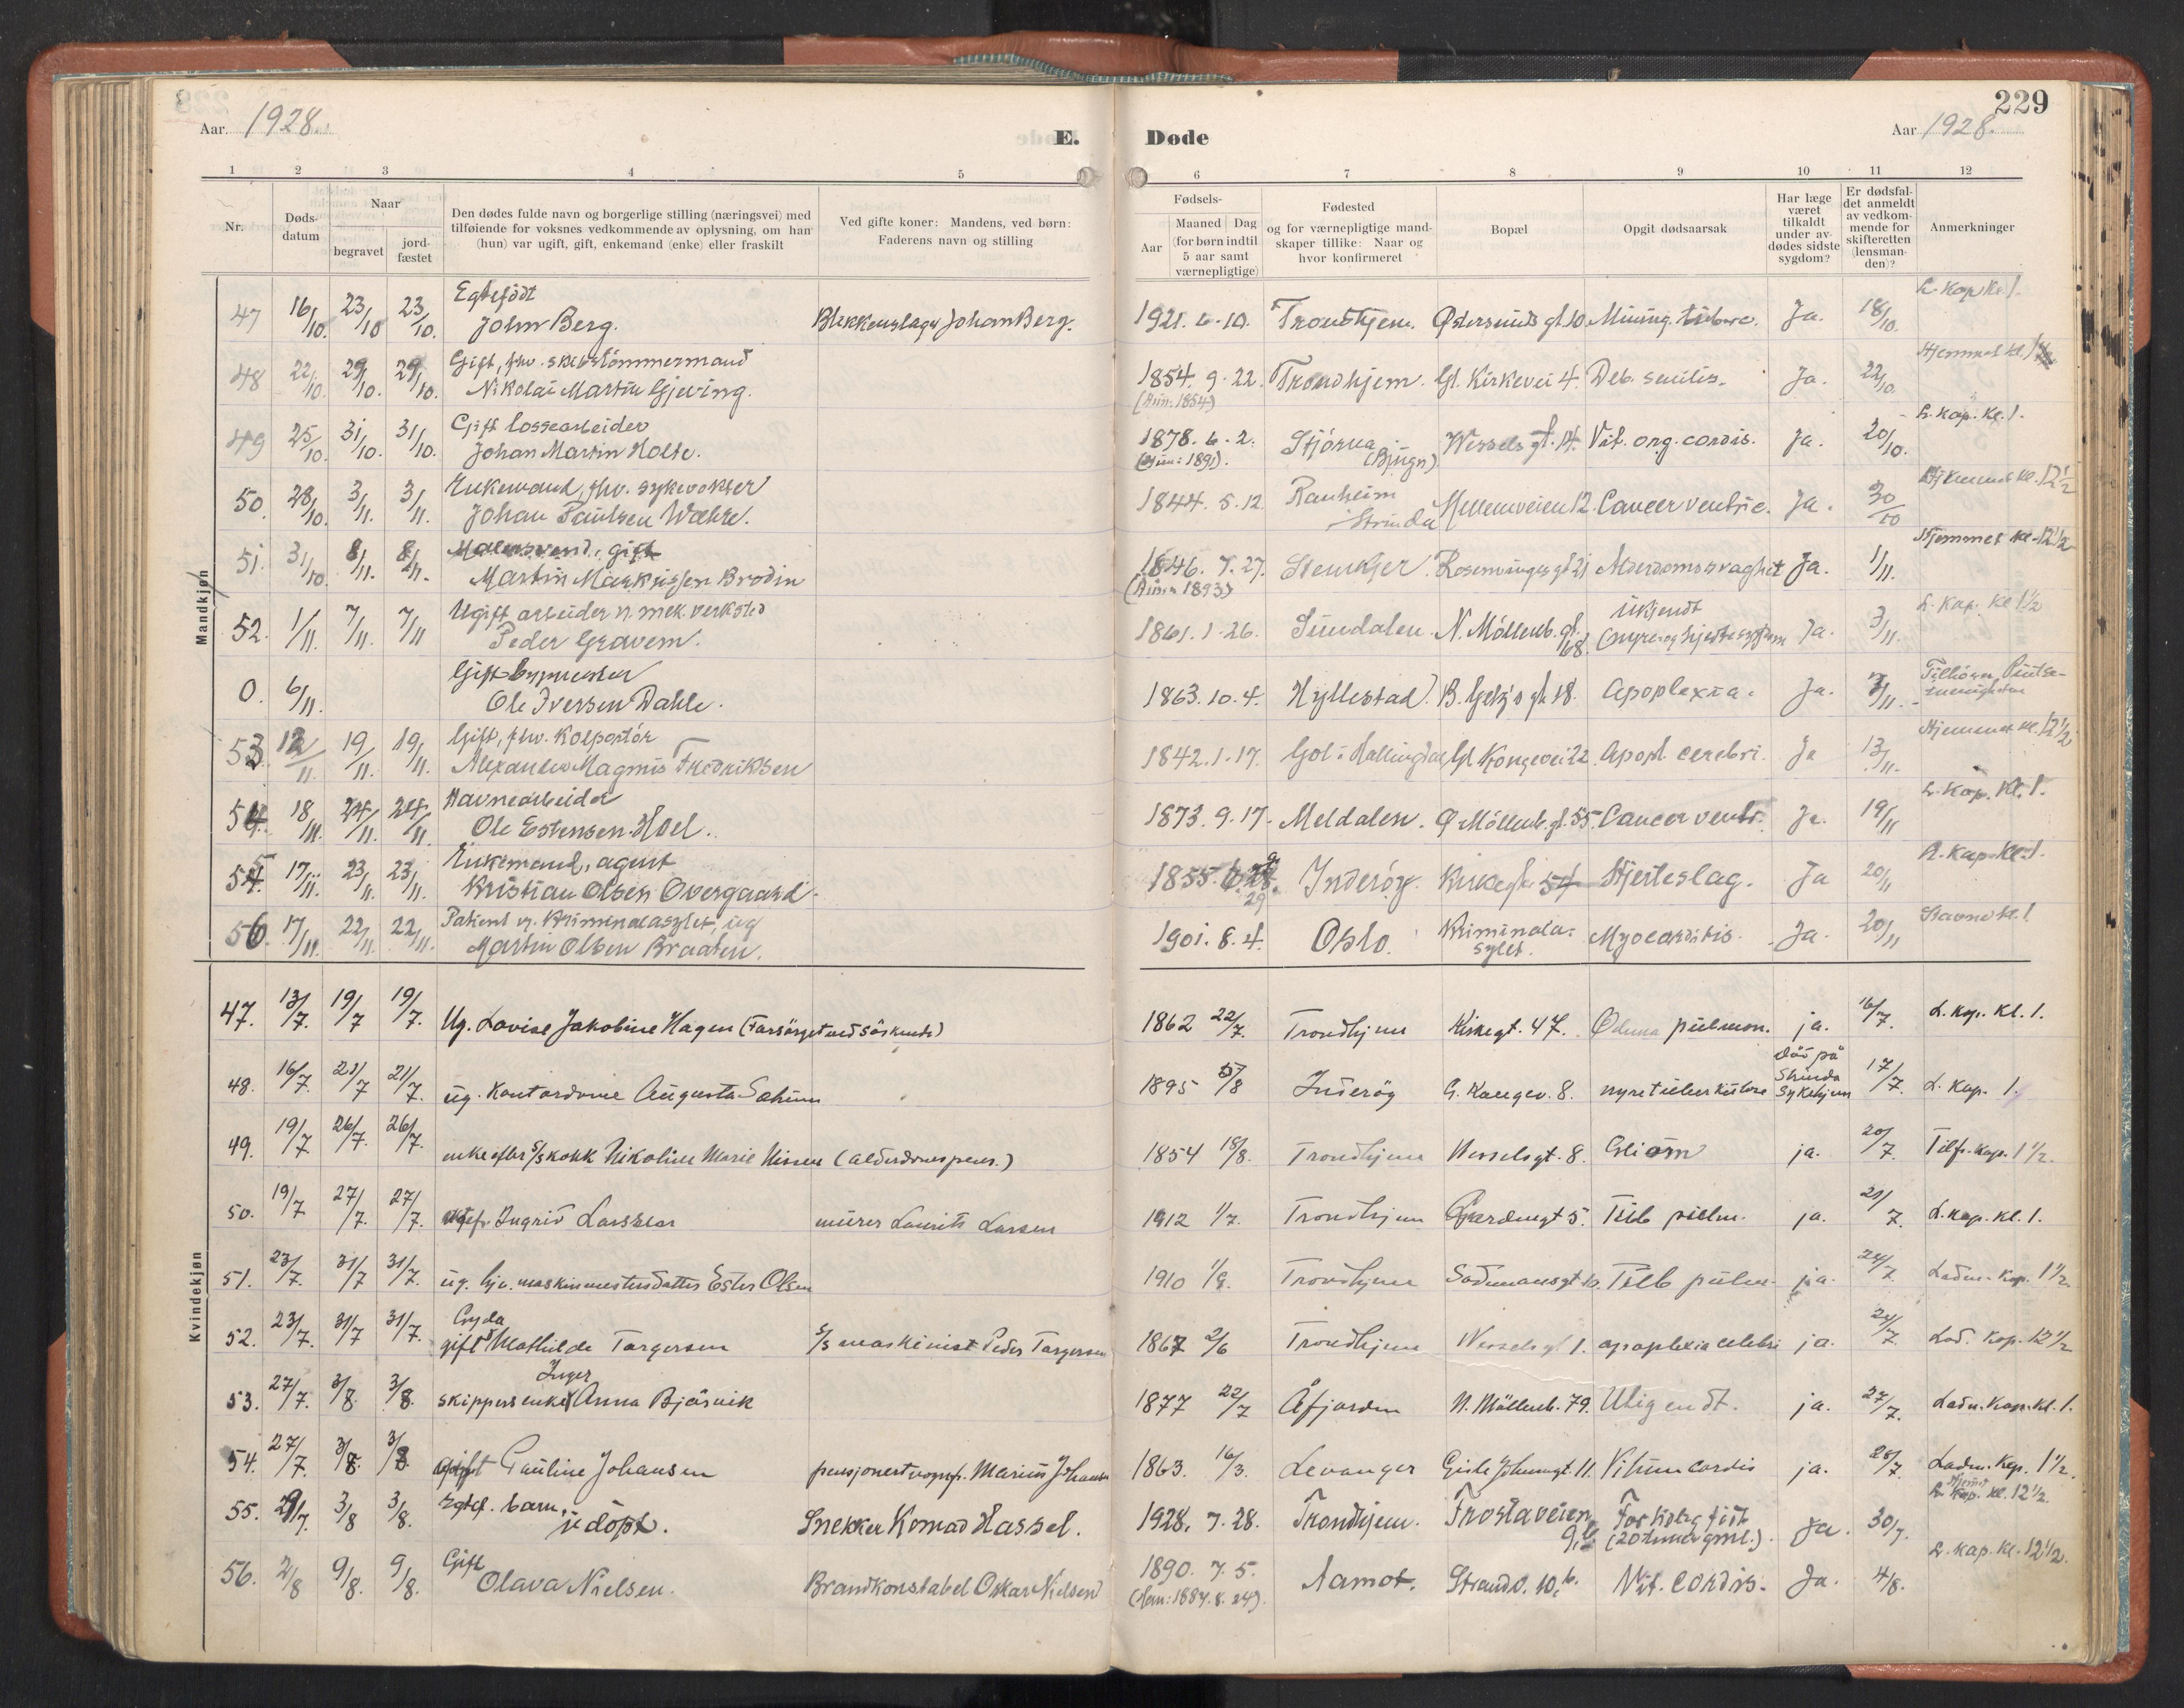 229
Aar 1928.
E.
Døde
Aar 1928.
1 2 3 4 5 6 7 8 9 10 11 12
Nr.
Døds-
datum
Naar
begravet
jord-
fæstet
Den dødes fulde navn og borgerlige stilling (næringsvei) med
tilføiende for voksnes vedkommende av oplysning, om han
(hun) var ugift, gift, enkemand (enke) eller fraskilt
Ved gifte koner: Mandens, ved børn:
Faderens navn og stilling
Fødsels-
Aar
Maaned Dag
(for børn indtil
5 aar samt
værnepligtige)
Fødested
og for værnepligtige mand-
skaper tillike: Naar og
hvor konfirmeret
Bopæl
Opgit dødsaarsak
Har læge
været
tilkaldt
under av-
dødes sidste
sygdom?
Er dødsfal-
det anmeldt
av vedkom-
mende for
skifteretten
(lensman-
den)?
Anmerkninger
Mandkjøn
Egtefödt
L. Kap kl 1.
47 16/10. 23/10 23/10. John Berg. Blekkenslager Johan Berg. 1921. 6. 10. Trondhjem. Østersunds gt. 10 Mening. tuberc. Ja. 18/10.
Gift, fhv. skibstömmermand
Hjemmet kl. 1
48 22/10. 29/10. 29/10. Nikolai Martin Gjeving. 1854. 9. 22. Trondhjem. Gl. Kirkevei 4. Deb. senilis. Ja. 22/10.
(Hun. 1854)
Gift lossearbeider
L. Kap. Kl. 1.
49 25/10. 31/10. 31/10. Johan Martin Holte. 1878. 6. 2. Stjörna (Bjugn) Wessels gt. 14. Vit. org. cordis. Ja. 20/10.
(Hun: 1891).
Enkemand, fhv. sykevokter
Hjemmet kl. 12½
50. 28/10. 3/11. 3/11. Johan Paulsen Wæhre. 1844. 5. 12. Ranheim Strinda Mellemveien 12. Cancer ventric. Ja. 30/10
Malersvend, gift
Hjemmet kl. 12½
51. 31/10. 8/11. 8/11. Martin Markussen Brodin 1846. 7. 27. Stenkjer. Rosenvinges gt 21 Alderdomssvaghet Ja. 1/11.
(Hun: 1893)
Ugift arbeider v. mek. verksted
L. Kap. Kl 1½
52. 1/11. 7/11. 7/11 Peder Gravem. 1861. 1. 26. Sundalen. N. Möllenb. gt. 68. Ukjendt (nyre og hjertesygdom Ja. 3/11.
Gift
0. 6/11. Ole Iversen Dahle. 1863. 10. 4. Hyllestad. B. Getz's gt 18. Apoplexia. Ja. 7/11.
Tilhörer Pinse-
menigheten
Gift, fhv. Kolportör
Hjemmet kl. 12½
53 12/11. 19/11. 19/11. Alexander Magnus Fredriksen 1842. 1. 17. Gol i Hallingdal Gl. Kongevei 22. Apopl. cerebri. Ja 13/11.
Havnearbeider
L. Kap. Kl. 1.
54. 18/11. 24/11. 24/11 Ole Estensen Hoel. 1873. 9. 17. Meldalen. Ø. Möllenb. gt. 55. Cancer ventr. Ja. 19/11
Enkemand, agent
L. Kap. Kl. 1.
55. 17/11. 23/11. 23/11. Kristian Olsen Overgaard. 1855. Inderöy. Kirkegt. 54 Hjerteslag. Ja 20/11
Patient v. Kriminalasylet, ug
Stavne kl. 1.
56. 17/11. 22/11. 22/11. Martin Olsen Braaten. 1901. 8. 4. Oslo. Kriminalasylet. Myocarditis. Ja. 20/11
Kvindekjøn
47. 13/7. 19/7 19/7. Ug. Lovise Jakobine Hagen (Forsörget ved söskende) 1862 22/7 Trondhjem Kirkegt. 47. Ödema pulmon. ja. 16/7. L. kap. kl. 1.
48. 16/7. 21/7 21/7. ug. Kontordame Augusta Sakum 1895 5/8 Inderöy G. Kongev. 8. nyretuberkulose död på Strinda Sykehjem 17/7. L. Kap. 1.
49. 19/7 26/7. 26/7. enke efter s/s kokk Nikoline Marie Nissen (alderdomspens.) 1854 18/8. Trondhjem Wesselsgt. 8. Gliom ja. 20/7. Tilfr. kap. 1½.
50. 19/7 27/7. 27/7. egtef. Ingrid Larssen murer Laurits Larsen 1912 1/7. Trondhjem 5. Tub pulm. ja. 21/7. L. kap. kl. 1.
51. 23/7. 31/7 31/7. ug. hjv. maskinmestersdatter Ester Olsen 1910 1/9. Trondhjem Tub pulm. ja. 24/7. Ladm. Kap. 1½.
52. 23/7. 31/7 31/7. gift Gyda Mathilde Torgersen s/s maskinist Peder Torgersen 1867 2/6 Trondhjem Wesselsgt 1. apoplexia celebri ja. 24/7. Lad. Kap. 12½
53. 27/7. 3/8. 3/8. skippersenke Inger Anna Bjärvik 1877 22/7 Åfjorden N. Möllenb. 79. ja. 27/7. Ladm. kap. kl. 1.
54. 27/7. 3/8. 3/8. gift Pauline Johansen pensjonert vognf. Marius Johansen 1863. 16/3. Levanger Gisle Johnsongt. 11. Vitium Cordis ja. 28/7. Ladm. Kap. 1½.
Hjemmet kl. 12½.
55. 29/7. 3/8 3/8. Egtef. barn, udöpt. Snekker Konrad Hassel. 1928. 7. 28. Trondhjem. Frostaveien 9,b For tidlig födt (20 timer gml.). Ja. 30/7.
L. kap. kl. 12½.
56. 2/8 9/8. 9/8. Gift Olava Nielsen. Brandkonstabel Oskar Nielsen 1890. 7. 5. Aamot. Strandv. 10,b. Vit. cordis. Ja. 4/8.
1884. 8. 24).